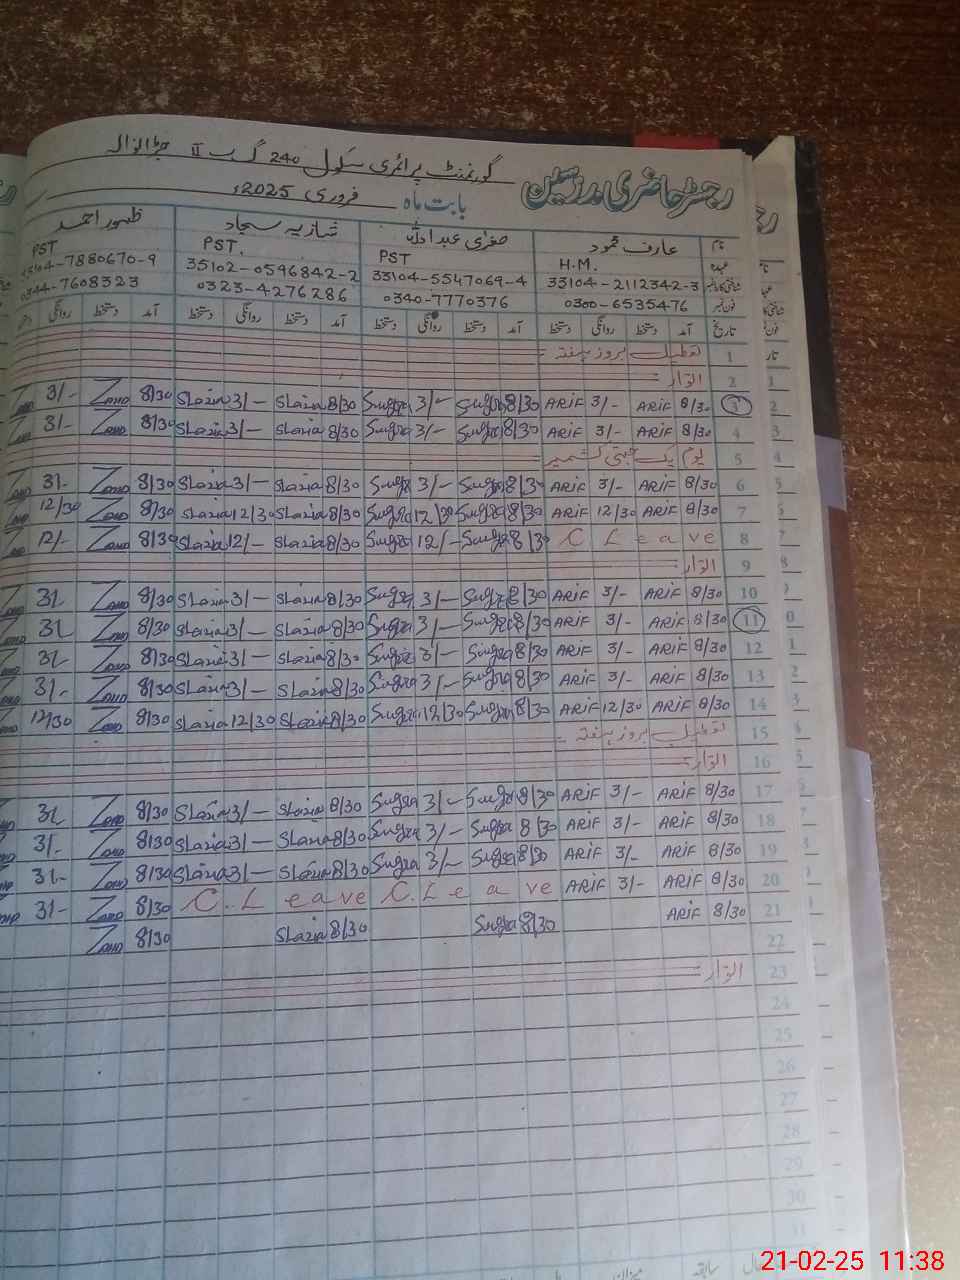 رجسٹر حاضری مدرسین گورنمنٹ پرائمری سکول 240 گ ب II جڑانوالہ
بابت ماہ فروری 2025ء
نام عارف محمود صغریٰ عبداللہ شازیہ سجاد ظہور احمد
عہدہ H.M. PST PST. PST
33104-2112342-3 33104-5547069-4 35102-0596842-2 33104-7880670-9
فون نمبر 0300-6535476 0340-7770376 0323-4276286 0344-7608323
تاریخ آمد دستخط روانگی دستخط آمد دستخط روانگی دستخط آمد دستخط روانگی دستخط آمد دستخط روانگی
1 تعطیل بروز ہفتہ
2 اتوار
3 8/30 ARIF 3/- ARIF 8/30 Sugra 3/- Sugra 8/30 Slazia 3/- Slazia 8/30 Zano 3/-
4 8/30 ARIF 3/- ARIF 8/30 Sugra 3/- Sugra 8/30 Slazia 3/- Slazia 8/30 Zano 3/-
5 یوم یک جہتی کشمیر
6 8/30 ARIF 3/- ARIF 8/30 Sugra 3/- Sugra 8/30 Slazia 3/- Slazia 8/30 Zano 3/-
7 8/30 ARIF 12/30 ARIF 8/30 Sugra 12/30 Sugra 8/30 Slazia 12/30 Slazia 8/30 Zano 12/30
8 C Leave 8/30 Sugra 12/- Sugra 8/30 Slazia 12/- Slazia 8/30 Zano 12/-
9 اتوار
10 8/30 ARIF 3/- ARIF 8/30 Sugra 3/- Sugra 8/30 Slazia 3/- Slazia 8/30 Zano 3/-
11 8/30 ARIF 3/- ARIF 8/30 Sugra 3/- Sugra 8/30 Slazia 3/- Slazia 8/30 Zano 3/-
12 8/30 ARIF 3/- ARIF 8/30 Sugra 3/- Sugra 8/30 Slazia 3/- Slazia 8/30 Zano 3/-
13 8/30 ARIF 3/- ARIF 8/30 Sugra 3/- Sugra 8/30 Slazia 3/- Slazia 8/30 Zano 3/-
14 8/30 ARIF 12/30 ARIF 8/30 Sugra 12/30 Sugra 8/30 Slazia 12/30 Slazia 8/30 Zano 12/30
15 تعطیل بروز ہفتہ
16 اتوار
17 8/30 ARIF 3/- ARIF 8/30 Sugra 3/- Sugra 8/30 Slazia 3/- Slazia 8/30 Zano 3/-
18 8/30 ARIF 3/- ARIF 8/30 Sugra 3/- Sugra 8/30 Slazia 3/- Slazia 8/30 Zano 3/-
19 8/30 ARIF 3/- ARIF 8/30 Sugra 3/- Sugra 8/30 Slazia 3/- Slazia 8/30 Zano 3/-
20 8/30 ARIF 3/- ARIF C.Leave C.Leave 8/30 Zano 3/-
21 8/30 ARIF 8/30 Sugra 8/30 Slazia 8/30 Zano
22
23 اتوار
24
25
26
27
28
29
30
31
سابقہ
21-02-25 11:38